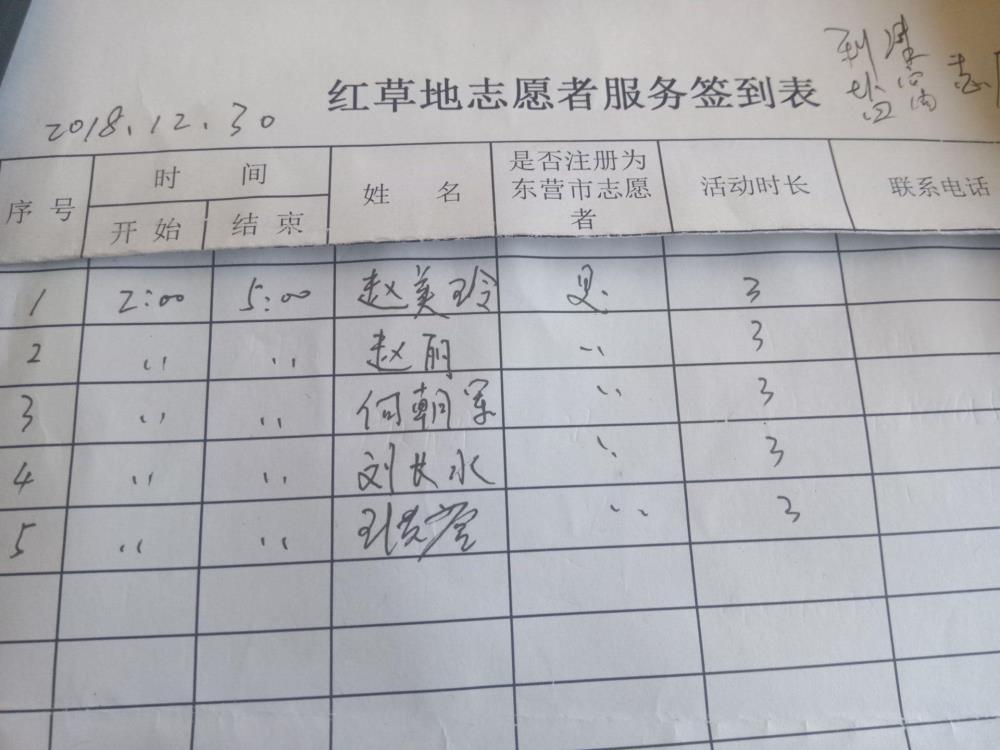 红草地志愿者服务签到表
2018.12.30
序号 时间 姓名 是否注册为东营市志愿者 活动时长 联系电话
开始 结束
1 2:00 5:00 赵美玲 是 3
2 〃 〃 赵丽 〃 3
3 〃 〃 何朝军 〃 3
4 〃 〃 刘长水 〃 3
5 〃 〃 〃 3